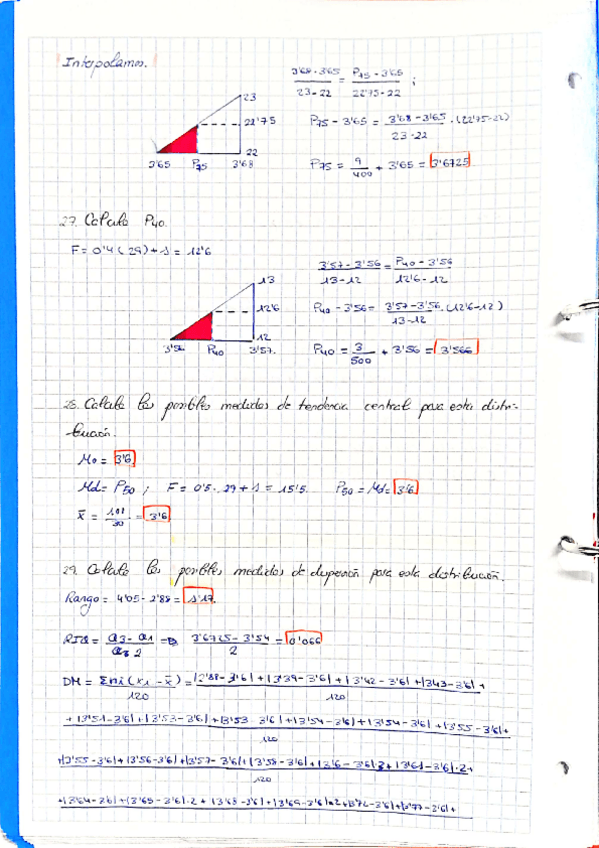 Interpolamos.
3'68-3'65 / 23-22 = P75-3'65 / 22'75-22 ;
23
22'75
22
3'65 P75 3'68
P75 - 3'65 = 3'68-3'65 / 23-22 · (22'75-22)
P75 = 9/400 + 3'65 = 3'6725
27. Calcula P40.
F = 0'4 (29) + 1 = 12'6
13
12'6
12
3'56 P40 3'57.
3'57-3'56 / 13-12 = P40-3'56 / 12'6-12
P40 - 3'56 = 3'57-3'56 / 13-12 · (12'6-12)
P40 = 3/500 + 3'56 = 3'566
28. Calcula las posibles medidas de tendencia central para esta distri-
bución.
Mo = 3'6
Md = P50 ; F = 0'5 · 29 + 1 = 15'5. P50 = Md = 3'6
x̄ = /30 = 3'6
29. Calcula las posibles medidas de dispersión para esta distribución.
Rango = 4'05 - 2'88 = 1'17.
= 3'6725 - 3'54 / 2 = 0'066
DM = Σni (xi - x̄) / 120 = |2'88-3'6| + |3'39-3'6| + |3'42-3'6| + |3'43-3'6| + / 120
+ |3'51-3'6| + |3'53-3'6| + |3'53-3'6| + |3'54-3'6| + |3'54-3'6| + |3'55-3'6| + / 120
+ |3'55-3'6| + |3'56-3'6| + |3'57-3'6| + |3'58-3'6| + |3'6-3'6|·3 + |3'61-3'6|·2 + / 120
+ |3'64-3'6| + |3'65-3'6|·2 + |3'68-3'6| + |3'69-3'6|·2 + |3'72-3'6| + |3'77-3'6| +